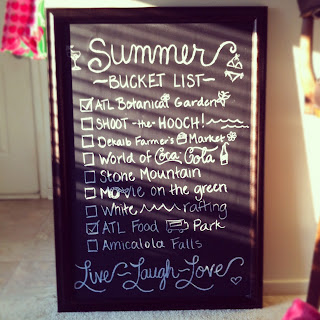 Summer
BUCKET LIST
ATL Botanical Garden
SHOOT the HOOCH!
Dekalb Farmer's Market
World of Coca-Cola
Stone Mountain
Movie on the green
White rafting
ATL Food Park
Amicalola Falls
Live-Laugh-Love